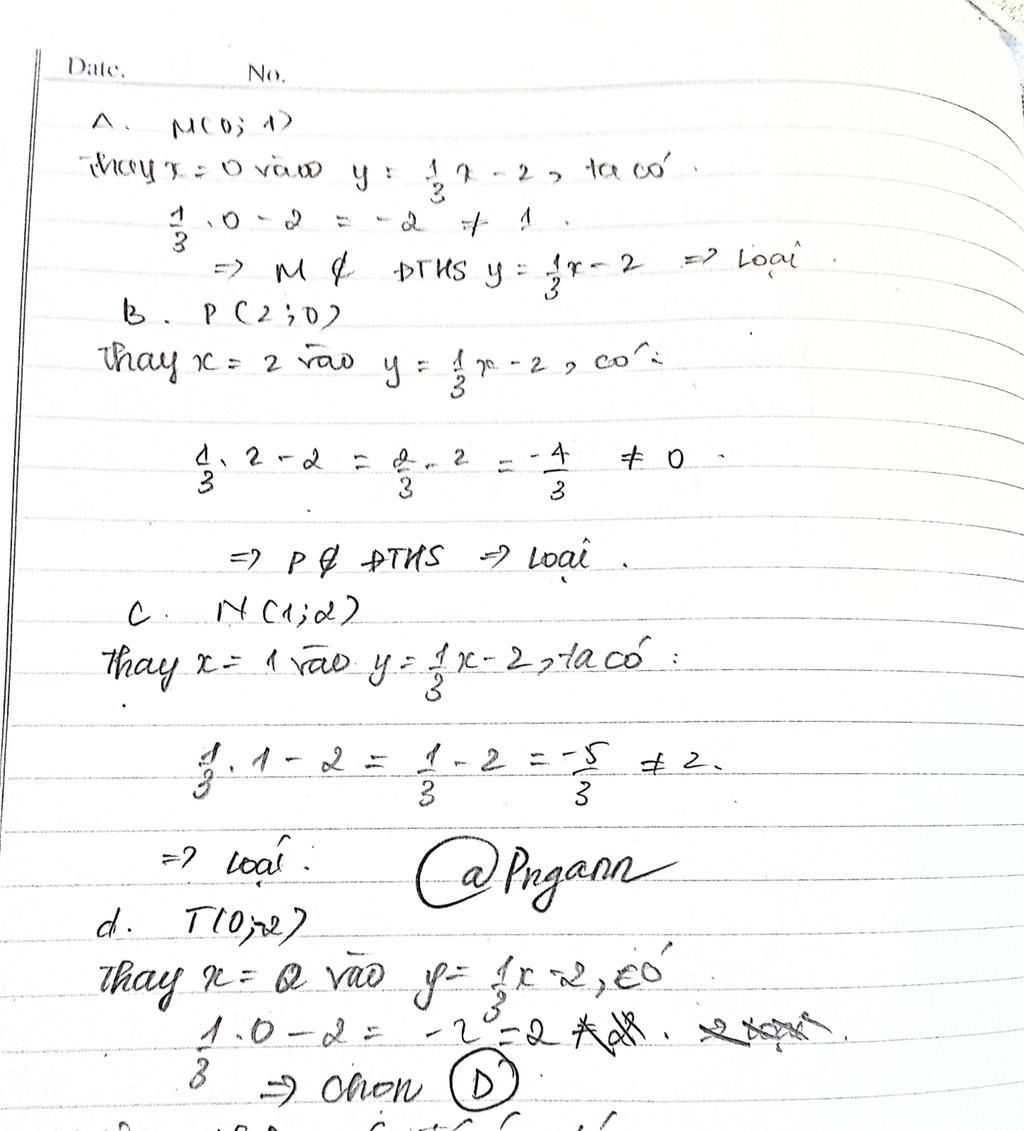 Date. No.
A. M(0; 1)
Thay x = 0 vào y = 1/3 x - 2, ta có.
1/3 . 0 - 2 = -2 ≠ 1.
=> M ∉ ĐTHS y = 1/3 x - 2 => Loại.
B. P(2; 0)
Thay x = 2 vào y = 1/3 x - 2, có:
1/3 . 2 - 2 = 2/3 - 2 = -4/3 ≠ 0.
=> P ∉ ĐTHS => Loại.
C. N(1; 2)
Thay x = 1 vào y = 1/3 x - 2, ta có:
1/3 . 1 - 2 = 1/3 - 2 = -5/3 ≠ 2.
=> Loại.
@Pngann
d. T(0; -2)
Thay x = 0 vào y = 1/3 x - 2, có
1/3 . 0 - 2 = -2 = 2
=> Chọn D